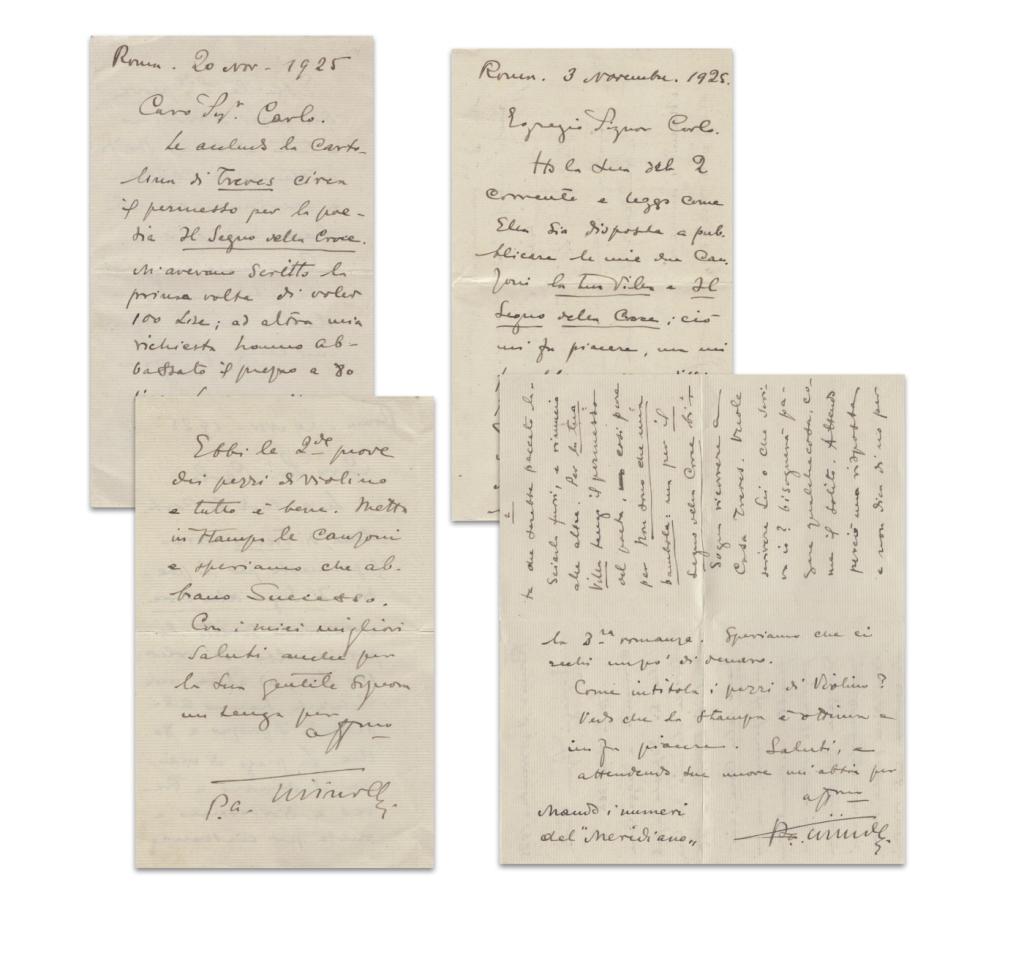 Roma. 20 Nov. 1925
Caro Sigr. Carlo.
Le accludo la Carto-
lina di Treves circa
il permesso per la poe-
sia Il Segno della Croce.
M'avevano Scritto la
prima volta di voler
100 Lire; ad altra mia
richiesta hanno ab-
bassato il prezzo a 80
Ebbi le 2de prove
dei pezzi di Violino
e tutto è bene. Metta
in Stampa le Canzoni
e speriamo che ab-
biano Successo.
Con i miei migliori
Saluti anche per
la Sua gentile Signora
mi tenga per
affmo
P.a.
Roma. 3 Novembre. 1925.
Egregio Signor Carlo.
Ho la Sua del 2
corrente e leggo come
Ella sia disposta a pub-
blicare le mie due Can-
zoni la tua Villa e Il
Segno della Croce; ciò
mi fa piacere, ma mi
te due sarebbe peccato la-
sciarla fuori, e rinuncio
alle altre. Per la tua
Villa tengo il permesso
del poeta, così pure
per Non sono che una
bambola: ma per il
Segno della Croce bi-
sogna ricorrere a
Casa Treves. Vuole
scrivere Lei o che scri-
va io? bisognerà pa-
gare qualche cosa, co-
me il solito. Attendo
perciò una risposta
e non dica di no per
la 3za romanza. Speriamo che ci
rechi un po' di denaro.
Come intitola i pezzi di Violino?
Vedo che la Stampa è ottima e
mi fa piacere. Saluti, e
attendendo Sue nuove mi abbia per
affmo
Mando i numeri
del "Meridiano"